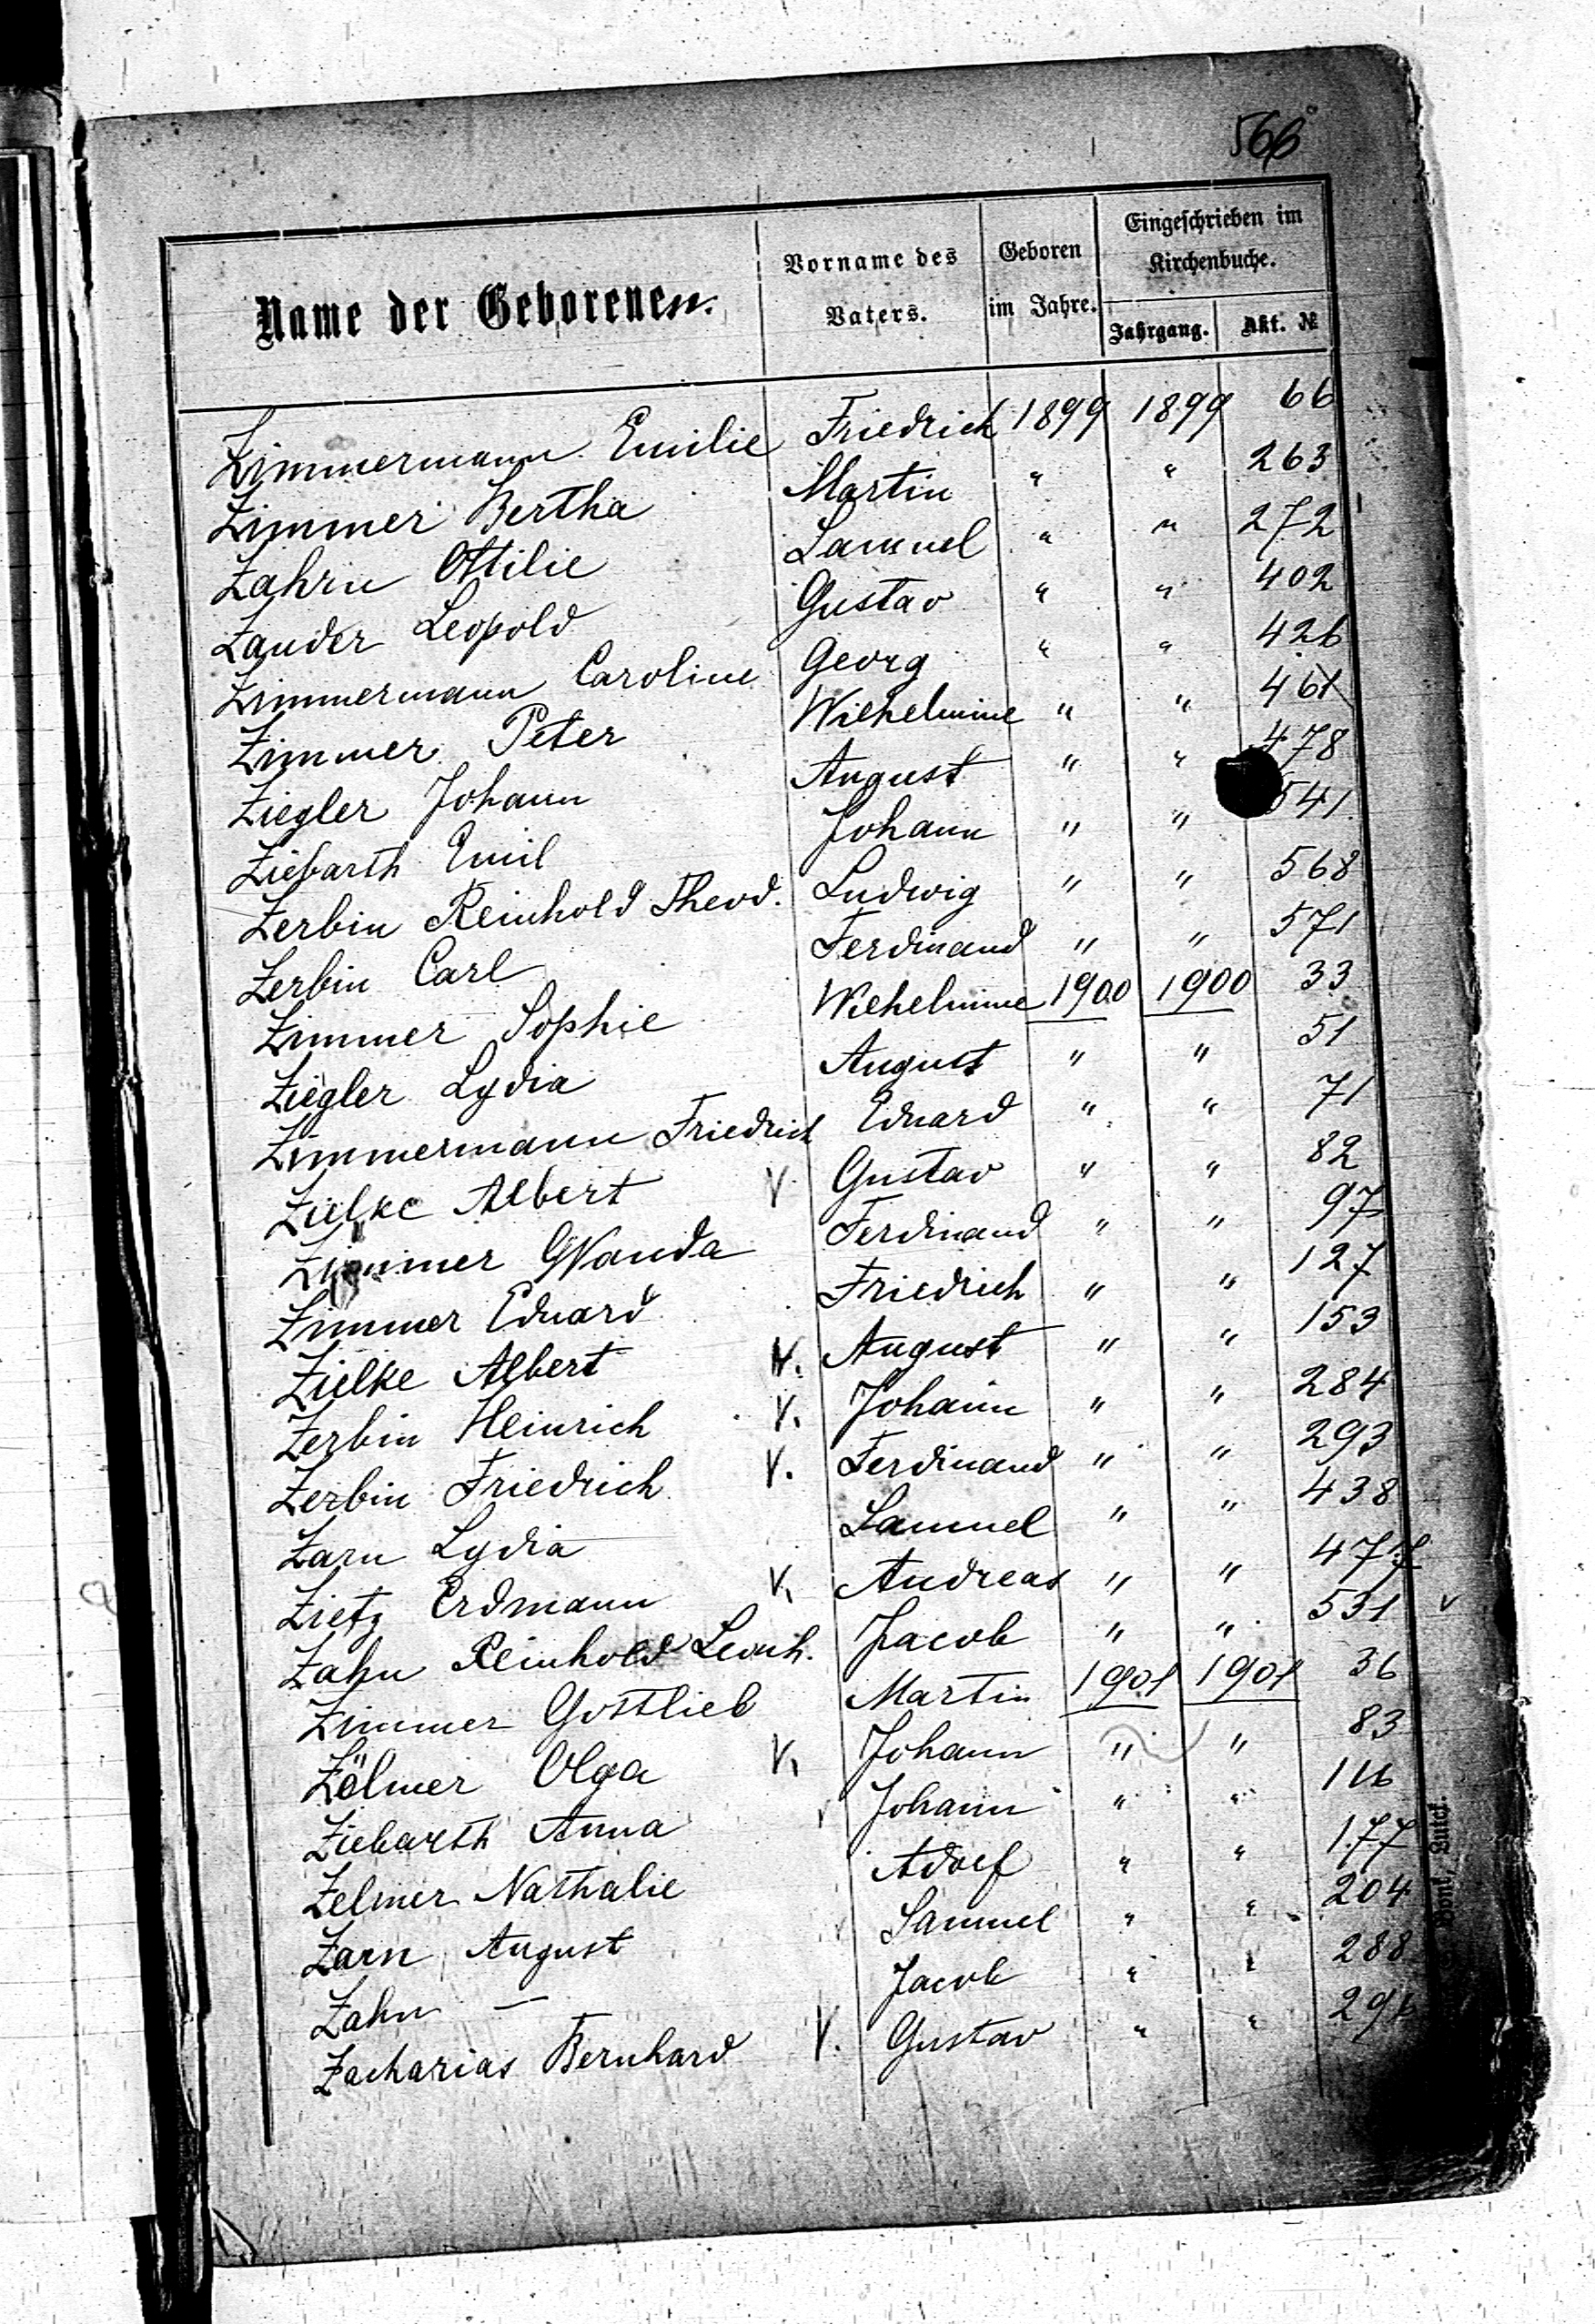 566
Name der Geborenen.
Vorname des Vaters.
Geboren im Jahre.
Eingeschrieben im Kirchenbuche.
Jahrgang. Akt. №
Zimmermann Emilie Friedrich 1899 1899 66
Zimmer Bertha Martin " " 263
Zahrin Ottilie Samuel " " 272
Zander Leopold Gustav " " 402
Zimmermann Caroline Georg " " 426
Zimmer Peter Wilhelmine " " 461
Ziegler Johann August " " 478
Ziebarth Emil Johann " " 541
Zerbin Reinhold Theod. Ludwig " " 568
Zerbin Carl Ferdinand " " 571
Zimmer Sophie Wilhelmine 1900 1900 33
Ziegler Lydia August " " 51
Zimmermann Friedrich Eduard " " 71
Zielke Albert V Gustav " " 82
Zimmer Wanda Ferdinand " " 97
Zimmer Eduard Friedrich " " 127
Zielke Albert V. August " " 153
Zerbin Heinrich V. Johann " " 284
Zerbin Friedrich V. Ferdinand " " 293
Zarn Lydia Samuel " " 438
Zietz Erdmann V. Andreas " " 477
Zahn Reinhold Leonh. Jacob " " 531 v
Zimmer Gottlieb Martin 1901 1901 36
Zölmer Olga V. Johann " " 83
Ziebarth Anna v Johann " " 116
Zelmer Nathalie Adolf " " 177
Zarn August v Samuel " " 204
Zahn — Jacob " " 288
Zacharias Bernhard V. Gustav " " 296